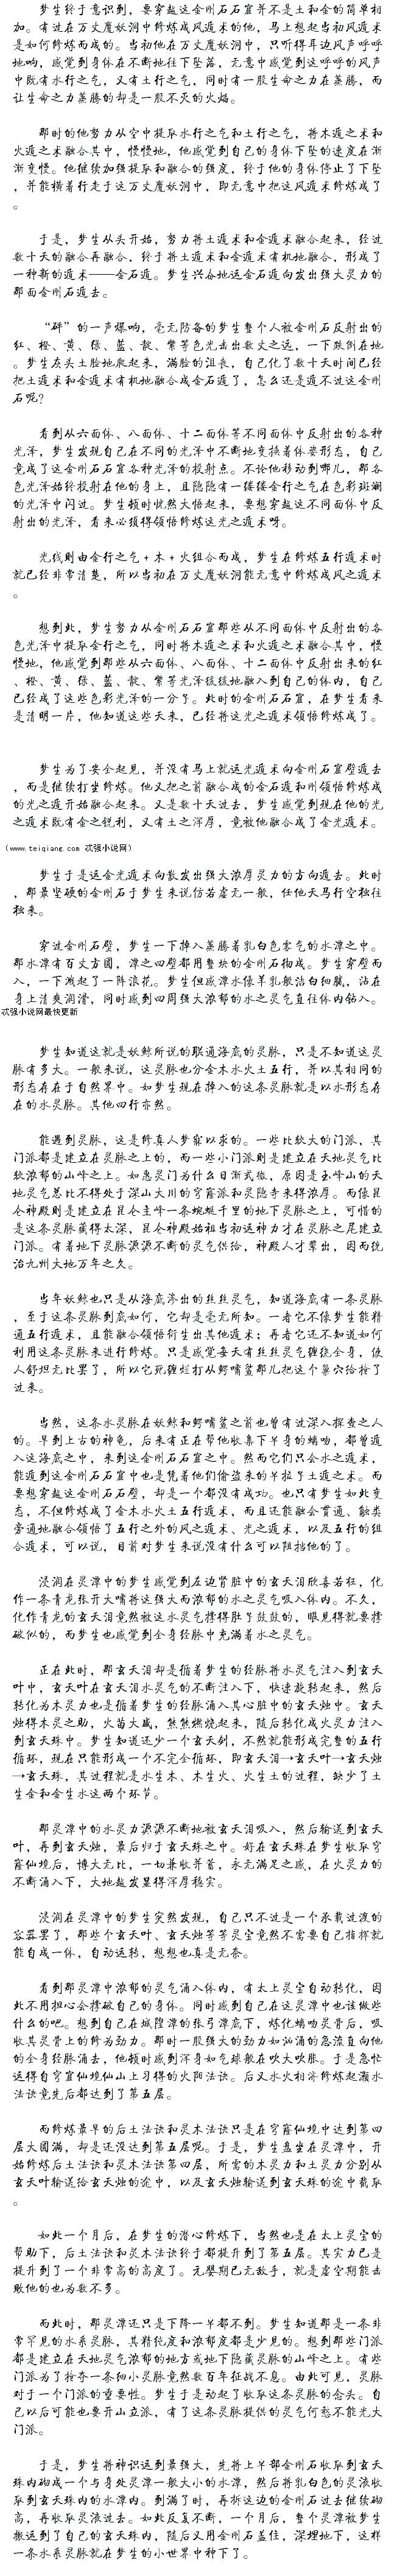 梦生终于意识到，要穿越这金刚石石窟并不是土和金的简单相
加。有过在万丈魔妖洞中修炼成风遁术的他，马上想起当初风遁术
是如何修炼而成的。当初他在万丈魔妖洞中，只听得耳边风声呼呼
地响，感觉到身体在不断地往下坠落，无意中感觉到这呼呼的风声
中既有水行之气，又有土行之气，同时有一股生命之力在蒸腾，而
让生命之力蒸腾的却是一股不灭的火焰。
那时的他努力从空中提取水行之气和土行之气，将木遁之术和
火遁之术融合其中，慢慢地，他感觉到自己的身体下坠的速度在渐
渐变慢。他继续加强提取和融合的强度，终于他的身体停止了下坠
，并能横着行走于这万丈魔妖洞中，即无意中把这风遁术修炼成了
。
于是，梦生从头开始，努力将土遁术和金遁术融合起来，经过
数十天的融合再融合，终于将土遁术和金遁术有机地融合，形成了
一种新的遁术——金石遁。梦生兴奋地运金石遁向发出强大灵力的
那面金刚石遁去。
“砰”的一声爆响，毫无防备的梦生整个人被金刚石反射出的
红、橙、黄、绿、蓝、靛、紫等色光击出数丈之远，一下跌倒在地
。梦生灰头土脸地爬起来，满脸的沮丧，自己化了数十天时间已经
把土遁术和金遁术有机地融合成金石遁了，怎么还是遁不过这金刚
石呢？
看到从六面体、八面体、十二面体等不同面体中反射出的各种
光泽，梦生发现自己在不同的光泽中不断地变换着体姿形态，自己
竟成了这金刚石石窟各种光泽的投射点。不论他移动到哪儿，那各
色光泽始终投射在他的身上，且隐隐有一缕缕金行之气在色彩斑斓
的光泽中闪过。梦生顿时恍然大悟起来，要想穿越这不同面体中反
射出的光泽，看来必须得领悟修炼这光之遁术呀。
光线则由金行之气+木+火组合而成，梦生在修炼五行遁术时
就已经非常清楚，所以当初在万丈魔妖洞能无意中修炼成风之遁术
。
想到此，梦生努力从金刚石石窟那些从不同面体中反射出的各
色光泽中提取金行之气，同时将木遁之术和火遁之术融合其中，慢
慢地，他感觉到那些从六面体、八面体、十二面体中反射出来的红
、橙、黄、绿、蓝、靛、紫等光泽缓缓地融入到自己的体内，自己
已经成了这些色彩光泽的一分子。此时的金刚石石窟，在梦生看来
是清明一片，他知道这些天来，已经将这光之遁术领悟修炼成了。
梦生为了安全起见，并没有马上就运光遁术向金刚石窟壁遁去
，而是继续打坐修炼。他又把之前融合成的金石遁和刚领悟修炼成
的光之遁开始融合起来。又是数十天过去，梦生感觉到现在他的光
之遁术既有金之锐利，又有土之浑厚，竟被他融合成了金光遁术。
（www.teiqiang.com 忒强小说网）
梦生于是运金光遁术向散发出强大浓厚灵力的方向遁去。此时
，那最坚硬的金刚石于梦生来说仿若虚无一般，任他天马行空独往
独来。
穿过金刚石壁，梦生一下掉入蒸腾着乳白色雾气的水潭之中。
那水潭有百丈方圆，潭之四壁都用整块的金刚石构成。梦生穿壁而
入，一下溅起了一阵浪花。梦生但感潭水像羊乳般洁白细腻，沾在
身上清爽润滑，同时感到四周强大浓郁的水之灵气直往体内钻入。
忒强小说网最快更新
梦生知道这就是妖鲸所说的联通海底的灵脉，只是不知道这灵
脉有多大。一般来说，这灵脉也分金木水火土五行，并以其相同的
形态存在于自然界中。如梦生现在掉入的这条灵脉就是以水形态存
在的水灵脉。其他四行亦然。
能遇到灵脉，这是修真人梦寐以求的。一些比较大的门派，其
门派都是建立在灵脉之上的，而一些小门派则是建立在天地灵气比
较浓郁的山峰之上。如惠灵门为什么日渐式微，原因是玉峰山的天
地灵气总比不得处于深山大川的穹窿派和灵隐寺来得浓厚。而像昆
仑神殿则是建立在昆仑主峰一条蜿蜒千里的地下灵脉之上，可惜的
是这条灵脉藏得太深，昆仑神殿始祖当初运神力才在灵脉之尾建立
门派。有着地下灵脉源源不断的灵气供给，神殿人才辈出，因而统
治九州大地万年之久。
当年妖鲸也只是从海底渗出的丝丝灵气，知道海底有一条灵脉
，至于这条灵脉到底如何，它却是毫无所知。一者它不像梦生能精
通五行遁术，且能融合领悟衍生出其他遁术；再者它还不知道如何
利用这条灵脉来进行修炼。只是感觉每天有丝丝灵气缠绕全身，使
人舒坦无比罢了，所以它死缠烂打从鳄嘴鲨那儿把这个巢穴给抢了
过来。
当然，这条水灵脉在妖鲸和鳄嘴鲨之前也曾有过深入探查之人
的。早到上古的神龟，后来有正在帮他收集下半身的螭吻，都曾遁
入这海底之中，来到这金刚石石窟之中。然而它们只会水之遁术，
能遁到这金刚石石窟中也是凭着他们偷盗来的半拉子土遁之术。而
要想穿越这金刚石石壁，却是一个都没有成功。也只有梦生如此变
态，不但修炼成了金木水火土五行遁术，而且还能融会贯通、触类
旁通地融合领悟了五行之外的风之遁术、光之遁术，以及五行的组
合遁术，可以说，目前对梦生来说没有什么可以阻挡他的了。
浸润在灵潭中的梦生感觉到左边肾脏中的玄天泪欣喜若狂，化
作一条青龙张开大嘴将这强大而浓郁的水之灵气吸入体内。不久，
化作青龙的玄天泪竟然被这水灵气撑得肚子鼓鼓的，眼见得就要撑
破似的，而梦生也感觉到全身经脉中充满着水之灵气。
正在此时，那玄天泪却是循着梦生的经脉将水灵气注入到玄天
叶中，玄天叶在玄天泪水灵气的不断注入下，快速旋转起来，然后
转化为木灵力也是循着梦生的经脉涌入其心脏中的玄天烛中。玄天
烛得木灵之助，火苗大盛，熊熊燃烧起来，随后转化成火灵力注入
到玄天珠中。梦生知道还少一个玄天剑，不然就能形成完整的五行
循环，现在只能形成一个不完全循环，即玄天泪→玄天叶→玄天烛
→玄天珠，其过程就是水生木、木生火、火生土的过程，缺少了土
生金和金生水这两个环节。
那灵潭中的水灵力源源不断地被玄天泪吸入，然后输送到玄天
叶，再到玄天烛，最后归于玄天珠之中。好在玄天珠在梦生收取穹
窿仙境后，博大无比，一切兼收并蓄，永无满足之感，在火灵力的
不断涌入下，大地越发显得浑厚稳实。
浸润在灵潭中的梦生突然发现，自己只不过是一个承载过渡的
容器罢了，那些个玄天叶、玄天烛等等灵宝竟然不需要自己指挥就
能自成一体，自动运转，想想也真是无奈。
看到那灵潭中浓郁的灵气涌入体内，有太上灵宝自动转化，因
此不用担心会撑破自己的身体。同时感到自己在这灵潭中也该做些
什么的吧。想到自己在城隍潭的张弓潭底下，炼化螭吻灵骨后，吸
收其灵骨上的修为劲力。那时一股强大的劲力如汹涌的急流直向他
的全身经脉涌去，他顿时感到浑身如气球般在吹大吹胀。于是急忙
运得自穹窿仙境仙山上习得的火阳法诀。后又水火相济修炼起灏水
法诀竟先后都达到了第五层。
而修炼最早的后土法诀和灵木法诀只是在穹窿仙境中达到第四
层大圆满，却是还没达到第五层呢。于是，梦生盘坐在灵潭中，开
始修炼后土法诀和灵木法诀第四层，所需的木灵力和土灵力分别从
玄天叶输送给玄天烛的途中，以及玄天烛输送到玄天珠的途中截取
。
如此一个月后，在梦生的潜心修炼下，当然也是在太上灵宝的
帮助下，后土法诀和灵木法诀终于都提升到了第五层。其实力已是
提升到了一个非常高的高度了。元婴期已无敌手，就是虚空期能击
败他的也为数不多。
而此时，那灵潭还只是下降一半都不到。梦生知道那是一条非
常罕见的水系灵脉，其精纯度和浓郁度都是少见的。想到那些门派
都是建立在天地灵气浓郁的地方或地下隐藏灵脉的山峰之上。有些
门派为了抢夺一条细小灵脉竟然数百年征战不息。由此可见，灵脉
对于一个门派的重要性。梦生于是动起了收取这条灵脉的念头。自
己以后可能也要开山立派，有了这条灵脉提供的灵气何愁不能光大
门派。
于是，梦生将神识运到最强大，先将上半部金刚石收取到玄天
珠内砌成一个与身处灵潭一般大小的水潭，然后将乳白色的灵液收
取到玄天珠内的水潭内。到满了时，再拆这边的金刚石过去继续砌
高，再收取灵液过去。如此反复不断，一个月后，整个灵潭被梦生
搬运到了自己的玄天珠内，随后又用金刚石盖住，深埋地下，这样
一条水系灵脉就在梦生的小世界中种下了。